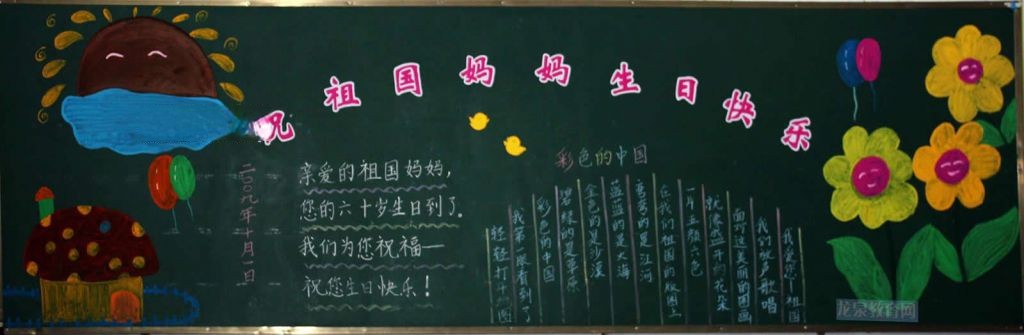 祝祖国妈妈生日快乐
二〇〇九年十月一日
亲爱的祖国妈妈，
您的六十岁生日到了。
我们为您祝福—
祝您生日快乐！
彩色的中国
轻轻打开地图
我第一眼看到了
彩色的中国
碧绿的是草原
金色的是沙漠
蓝蓝的是大海
弯弯的是江河
在我们祖国的版图上
一片五颜六色
就像盛开的花朵
面对这美丽的图画
我们放声歌唱
我爱您—祖国
龙泉教育网